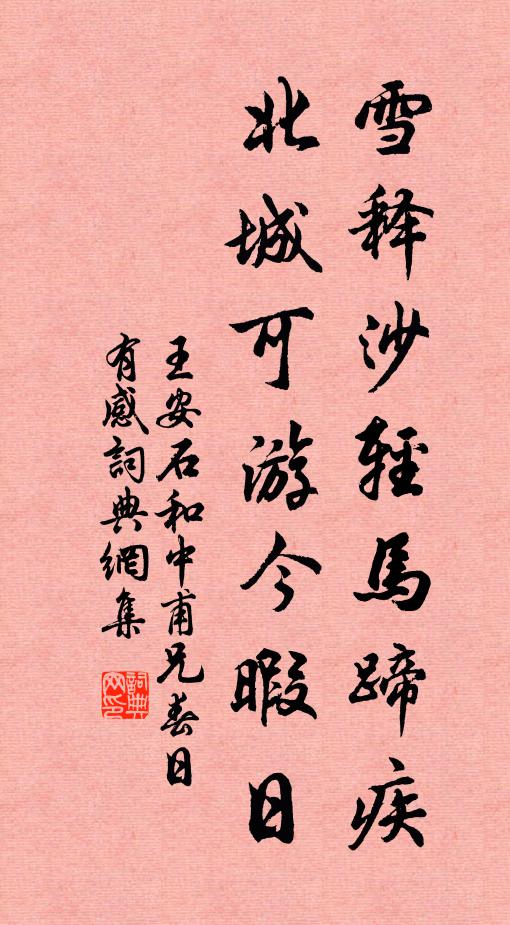 雪释沙輕馬蹄疾
北城可游今暇日
王安石和中甫兄春日
有感詞典網集
詞典網印